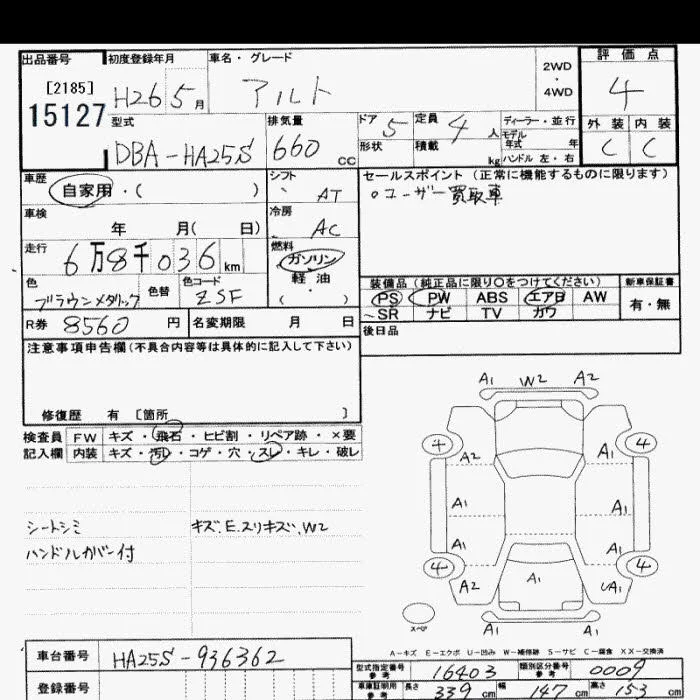 出品番号 初度登録年月 車名・グレード 2WD ・ 4WD 評価点
[2185] H26 5月 アルト 4
15127 型式 排気量 ドア 5 定員 4人 ディーラー・並行 外装 内装
DBA-HA25S 660cc 形状 積載 kg モデル年式 年 C C
ハンドル 左・右
車歴 シフト セールスポイント (正常に機能するものに限ります)
自家用・( ) AT 。ユーザー買取車
車検 冷房
年 月( 日) AC
走行 燃料
6万8千036km ガソリン・軽油・( )
色 色替 色コード 装備品 (純正品に限り○をつけてください) 新車保証書
ブラウンメタリック ZSF PS PW ABS エアB AW 有・無
R券 8560円 名変期限 月 日 SR ナビ TV カワ
後日品
注意事項申告欄(不具合内容等は具体的に記入して下さい)
修復歴 有 [箇所 ]
検査員 FW キズ・飛石・ヒビ割・リペア跡・×要
記入欄 内装 キズ・汚レ・コゲ・穴・スレ・キレ・破レ
シートシミ キズ、E、スリキズ、W2
ハンドルカバー付
A1 W2 A2
4 4
A2 A1
A1 A1
A1 A1
4 4
A2 A1 UA1
スペア A1 A1
A-キズ E-エクボ U-凹み W-補修跡 S-サビ C-腐食 XX-交換済
車台番号 HA25S-936362
型式指定番号 参考 16403 類別区分番号 参考 0009
登録番号
車庫証明用 参考 長さ 339cm 幅 147cm 高さ 153cm